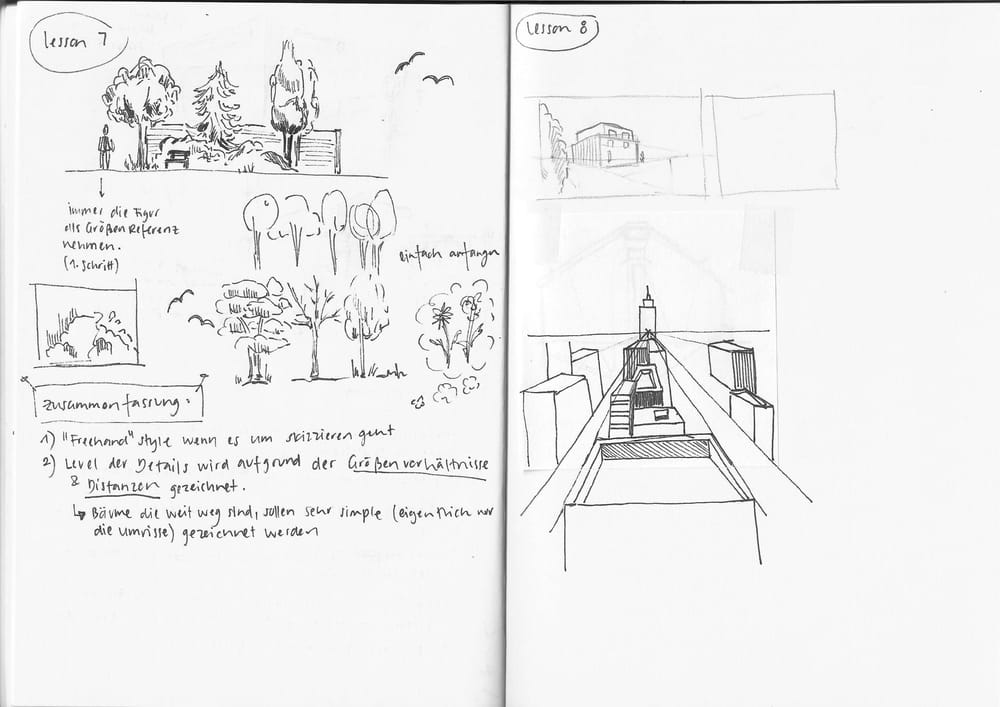 Lesson 7
immer die Figur
als Größenreferenz
nehmen.
(1. Schritt)
einfach anfangen
Zusammenfassung:
1) "Freehand" style wenn es um skizzieren geht
2) Level der Details wird aufgrund der Größenverhältnisse
& Distanzen gezeichnet.
↳ Bäume die weit weg sind, sollen sehr simple (eigentlich nur
die Umrisse) gezeichnet werden
Lesson 8